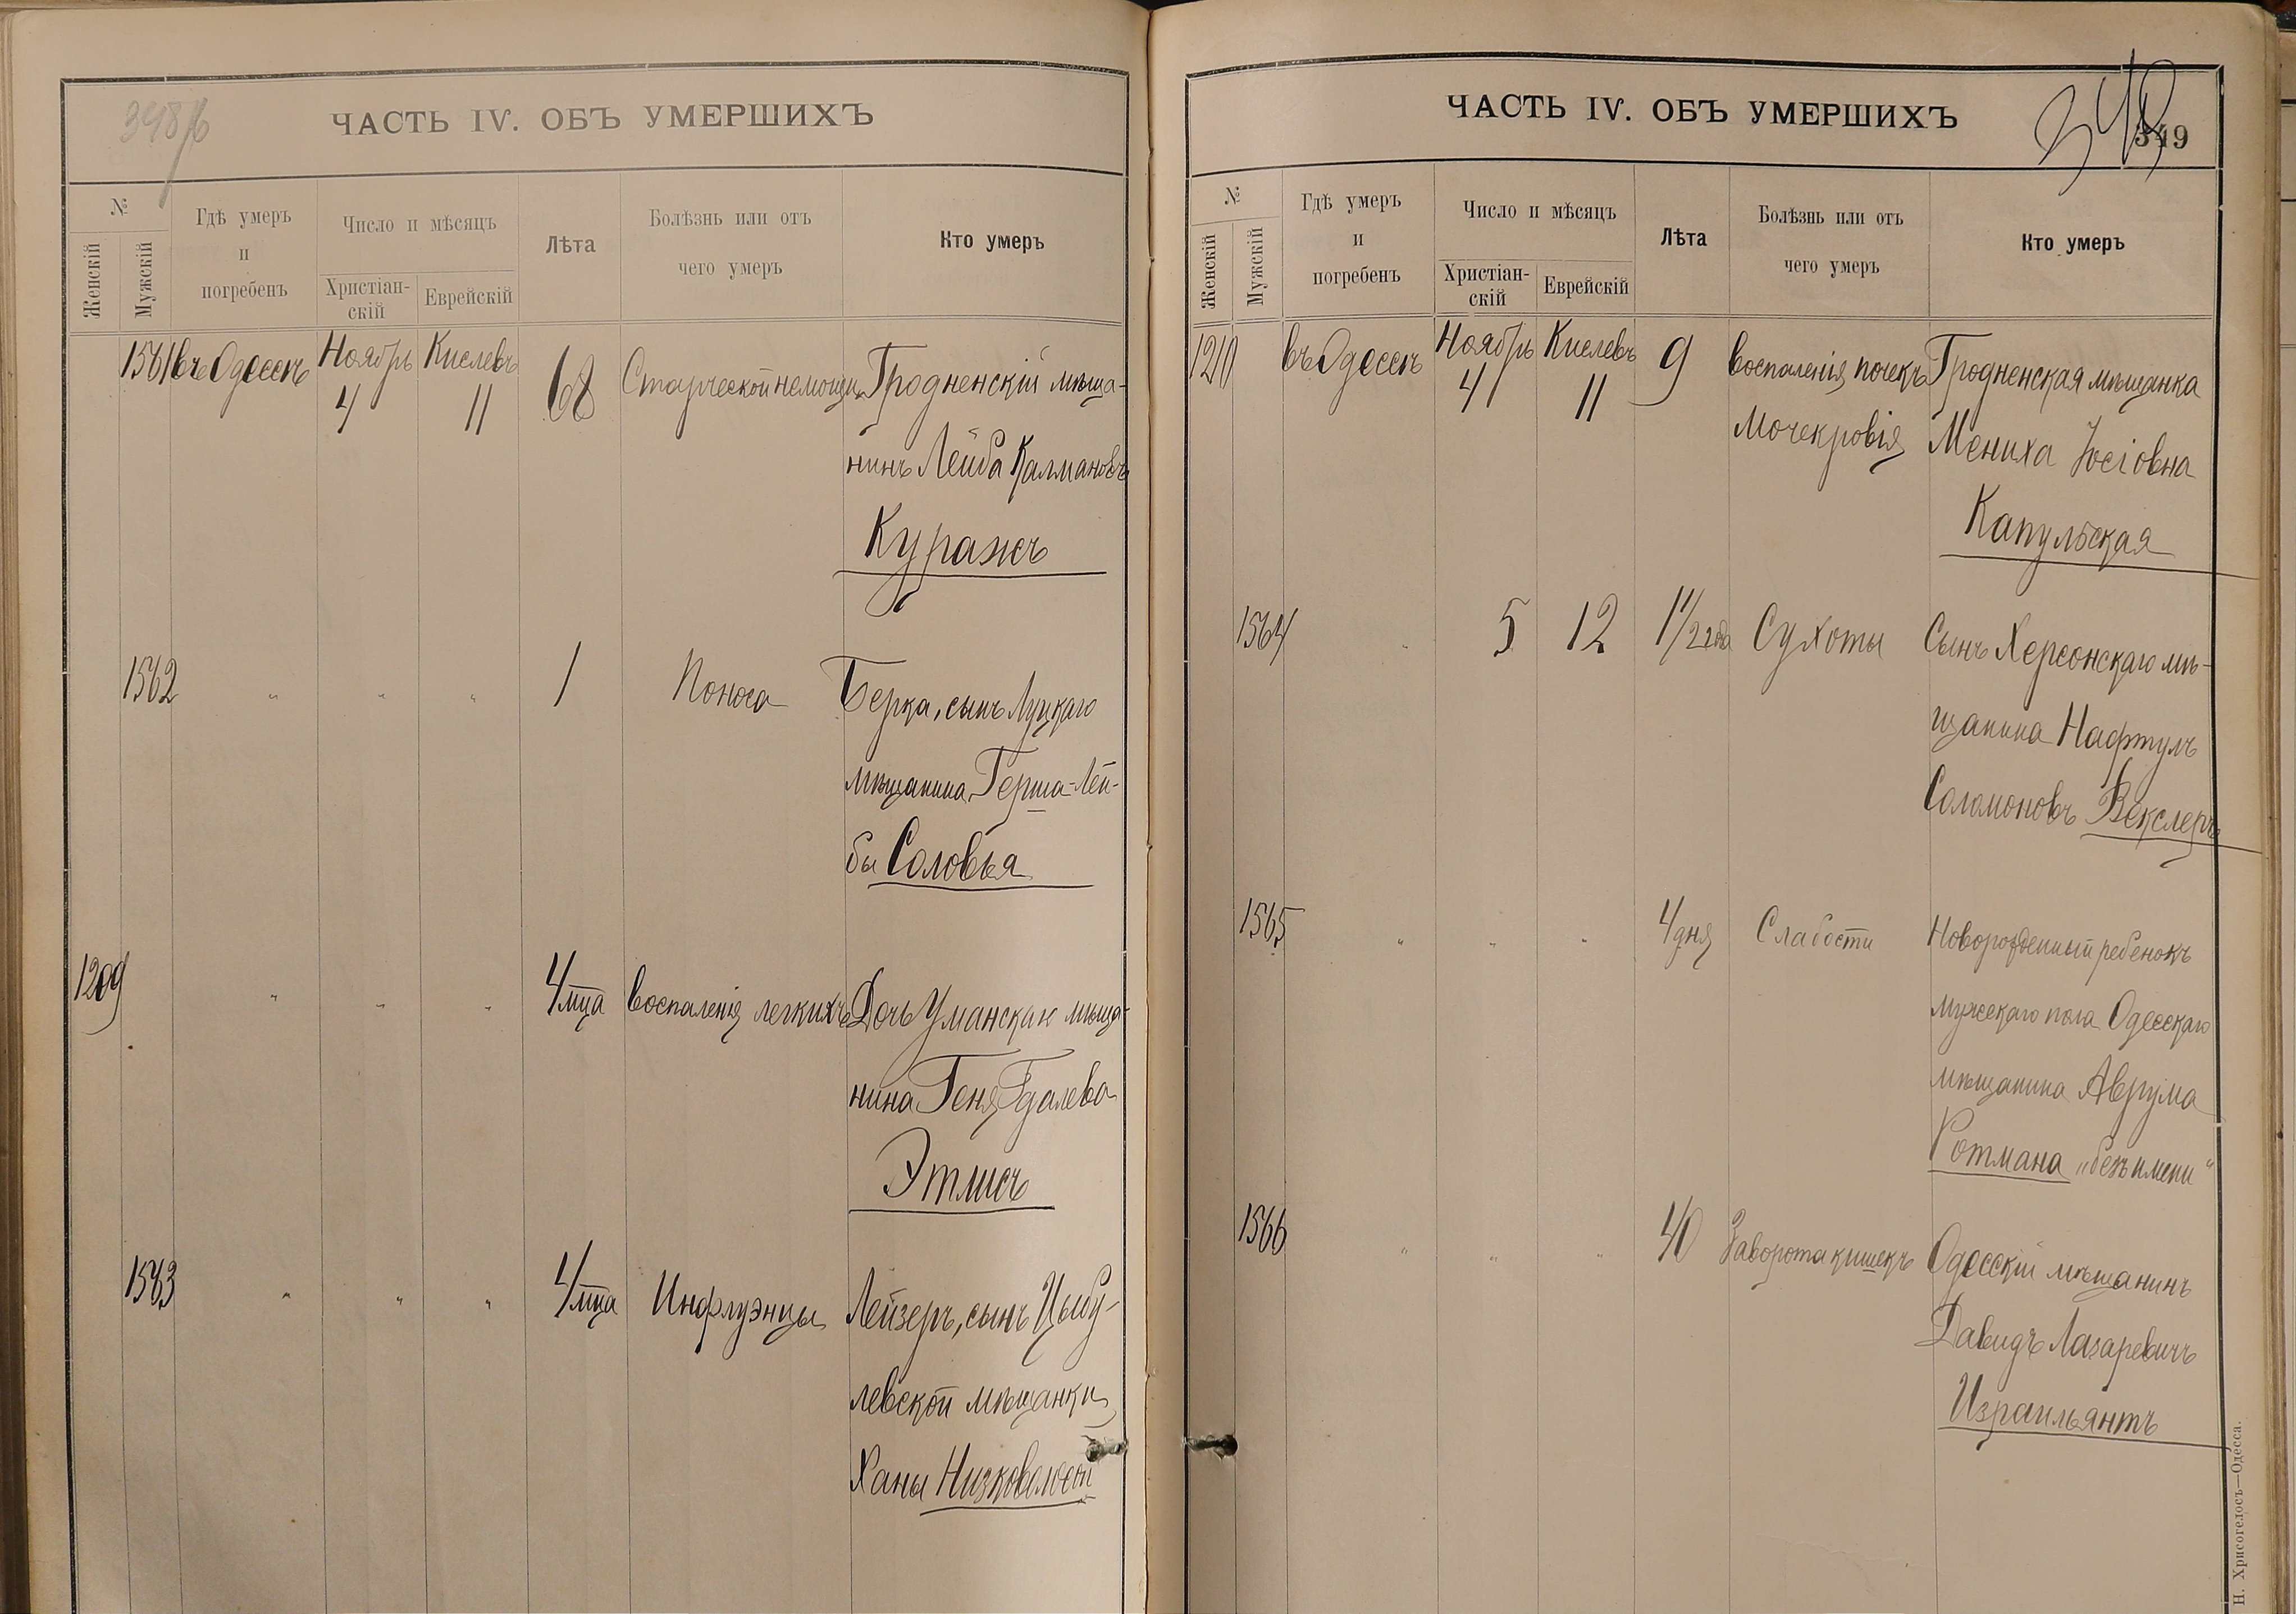 348/б
ЧАСТЬ IV. ОБЪ УМЕРШИХЪ
№
Женскій
Мужскій
Гдѣ умеръ
и
погребенъ
Число и мѣсяцъ
Христіан-
скій
Еврейскій
Лѣта
Болѣзнь или отъ
чего умеръ
Кто умеръ
1561 въ Одессѣ Ноябрь 4 Кислевъ 11 68 Старческой немощи Гродненскій мѣща-
нинъ Лейба Калмановъ
Куражъ
1562 " " " 1 Поноса Берка, сынъ Луцкаго
мѣщанина Герша-Лей-
бы Соловья
1209 " " " 4 мца воспаленія легкихъ Дочь Уманскаго мѣща-
нина Геня Гдалева
Этлисъ
1563 " " " 4 мца Инфлуэнцы Лейзеръ, сынъ Цыбу-
левской мѣщанки
Ханы Низковолосой
ЧАСТЬ IV. ОБЪ УМЕРШИХЪ
348
349
№
Женскій
Мужскій
Гдѣ умеръ
и
погребенъ
Число и мѣсяцъ
Христіан-
скій
Еврейскій
Лѣта
Болѣзнь или отъ
чего умеръ
Кто умеръ
1210 въ Одессѣ Ноябрь 4 Кислевъ 11 9 воспаленія почекъ Гродненская мѣщанка
Мочекровія Мениха Іосіовна
Капульская
1564 " 5 12 1 1/2 года Сухоты Сынъ Херсонскаго мѣ-
щанина Нафтулъ
Соломоновъ Векслеръ
1565 " " " 4 дня Слабости Новорожденный ребенокъ
мужскаго пола Одесскаго
мѣщанина Аврума
Ротмана „безъ имени"
1566 " " " 40 Заворота кишекъ Одесскій мѣщанинъ
Давидъ Лазаревичъ
Израильянтъ
Н. Хрисогелосъ—Одесса.